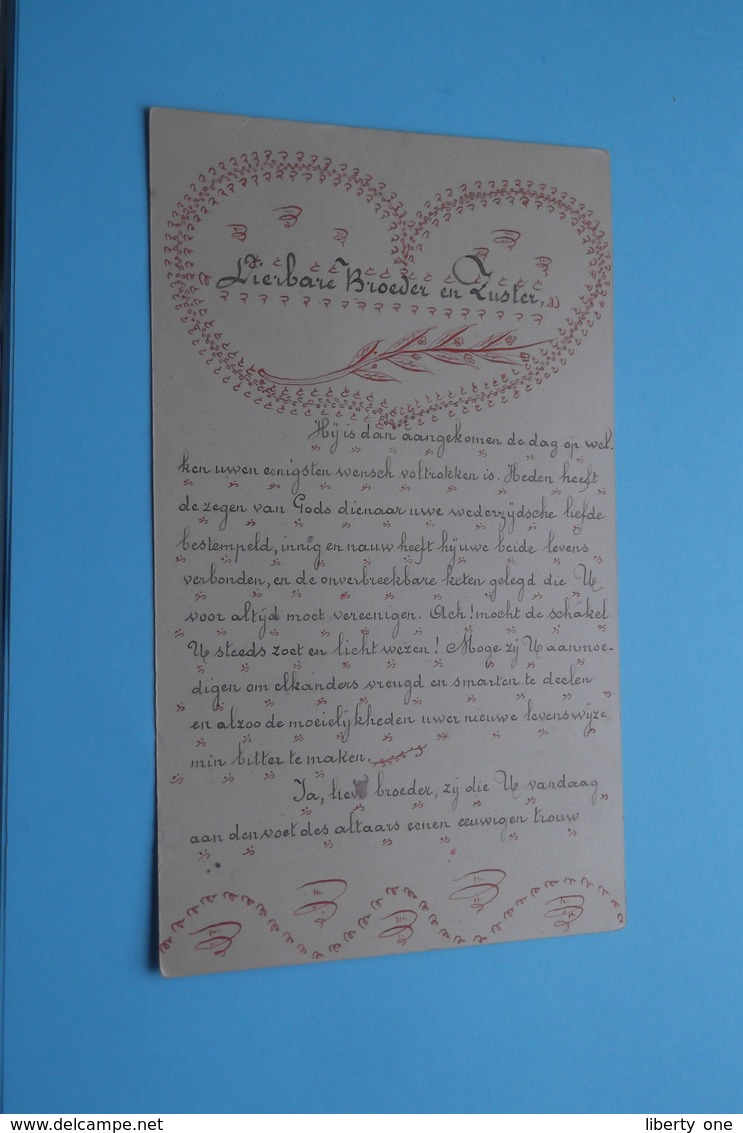 Dierbare Broeder en Zuster,
Hij is dan aangekomen de dag op wel-
ken uwen eenigsten wensch voltrokken is. Heden heeft
de zegen van Gods dienaar uwe wederzijdsche liefde
bestempeld, innig en nauw heeft hij uwe beide levens
verbonden, en de onverbreekbare keten gelegd die U
voor altijd moet vereenigen. Ach! mocht de schakel
U steeds zoet en licht wezen! Moge zij U aanmoe-
digen om elkanders vreugd en smarten te deelen
en alzoo de moeielijkheden uwer nieuwe levenswijze
min bitter te maken.
Ja, lieve broeder, zij die U vandaag
aan den voet des altaars eenen eeuwigen trouw
www.delcampe.net
liberty one